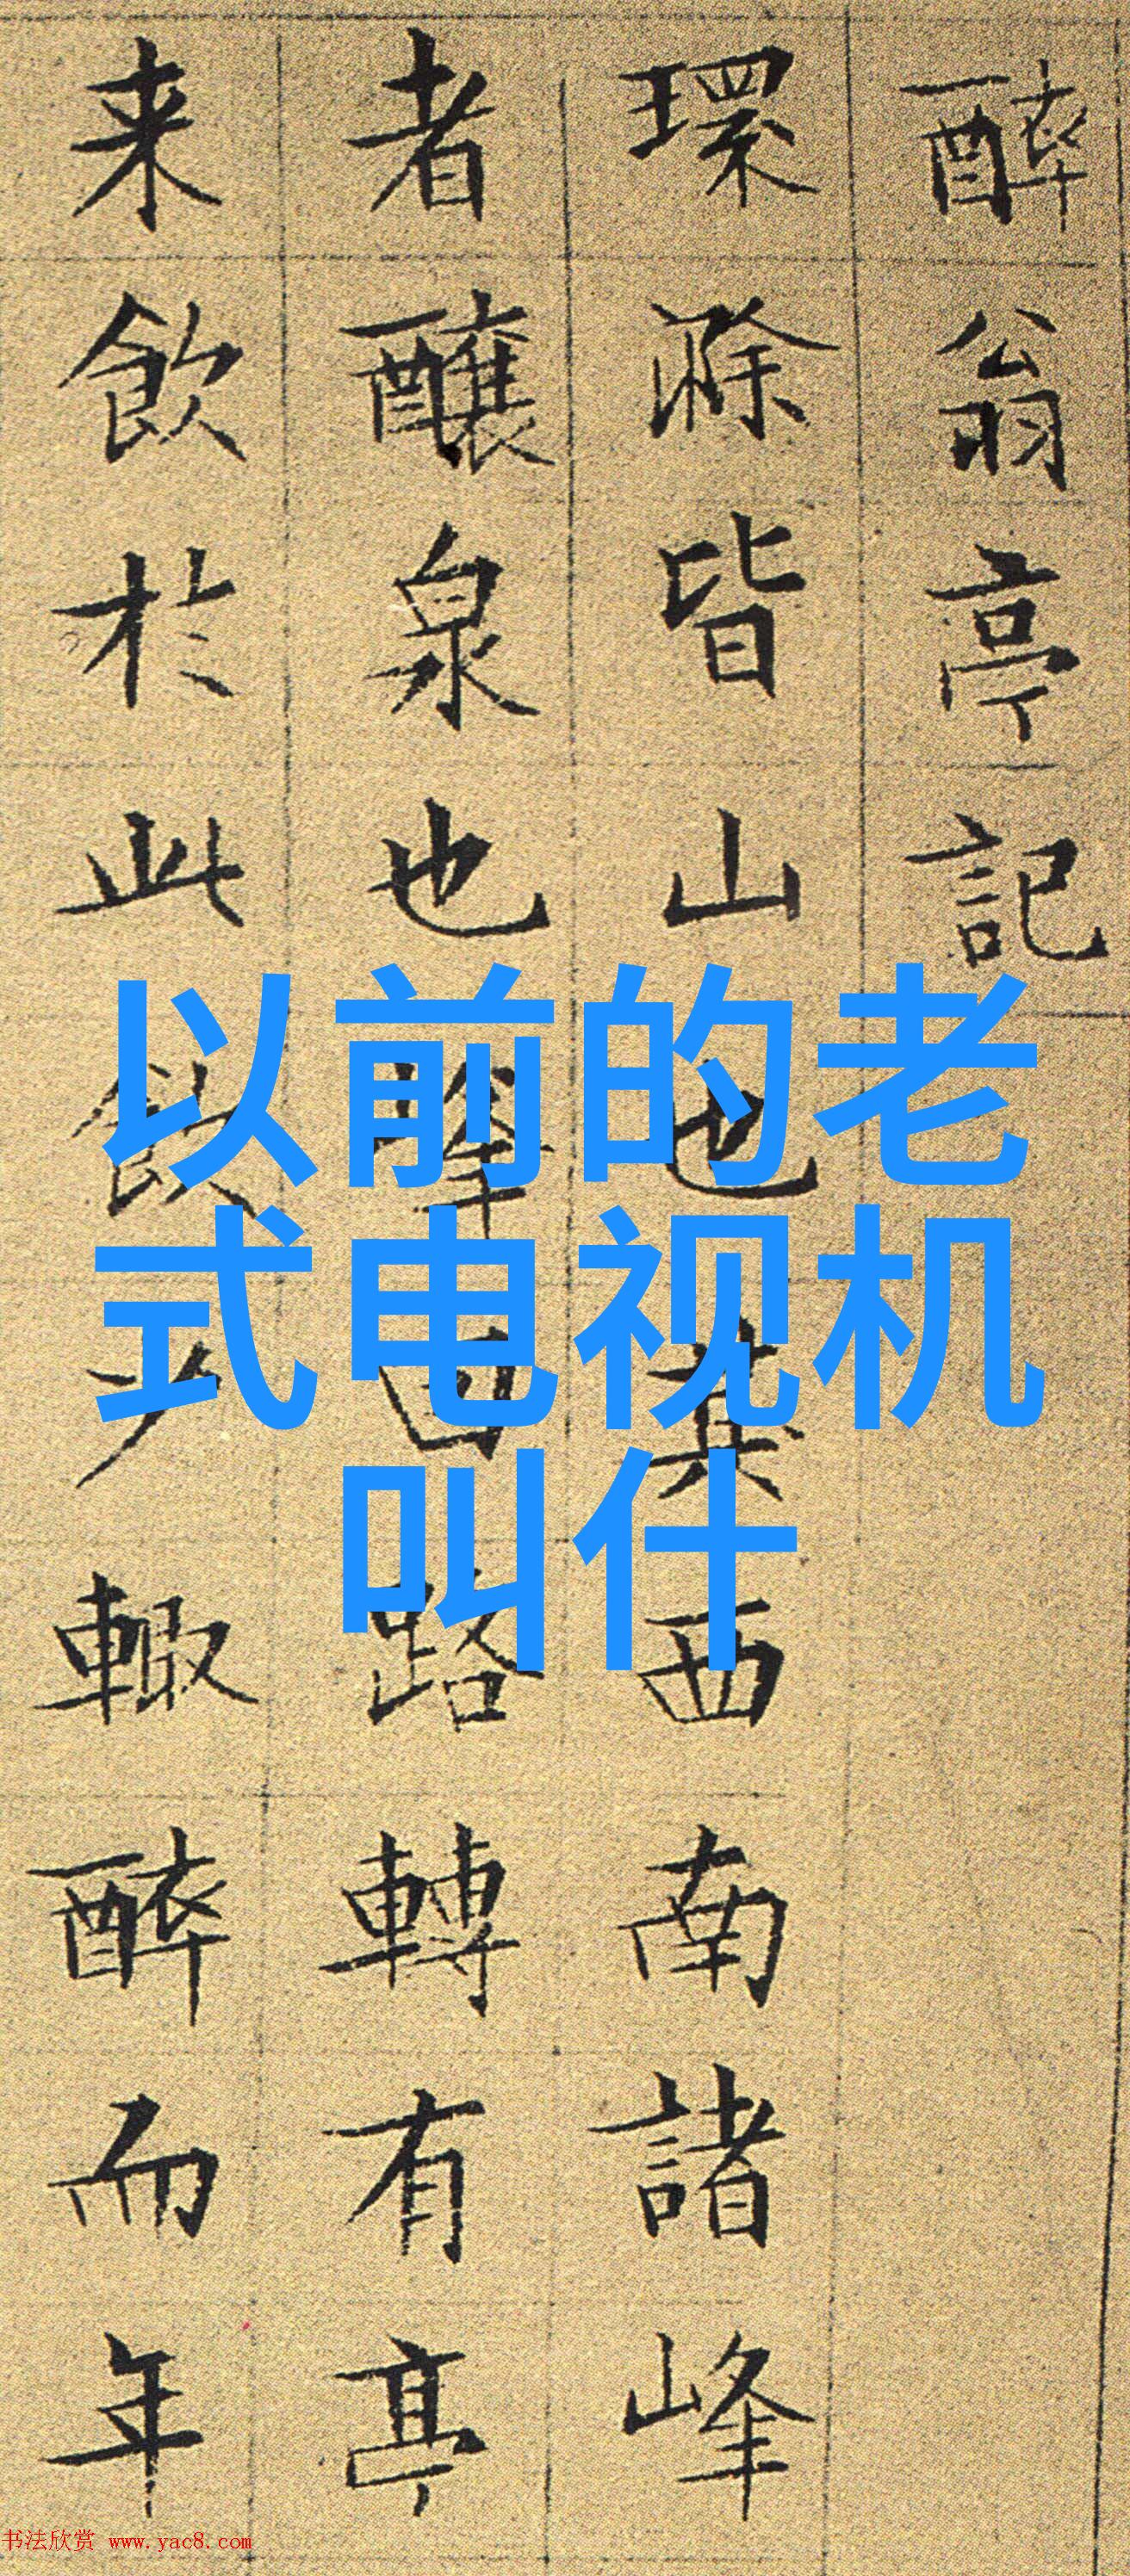 醉翁亭記
環滁皆山也其西南諸峰
者釀泉也峰回路轉有亭
来飲於此飲少輙醉而年
以前的老
式电视机
叫什
书法欣赏 www.yac8.com